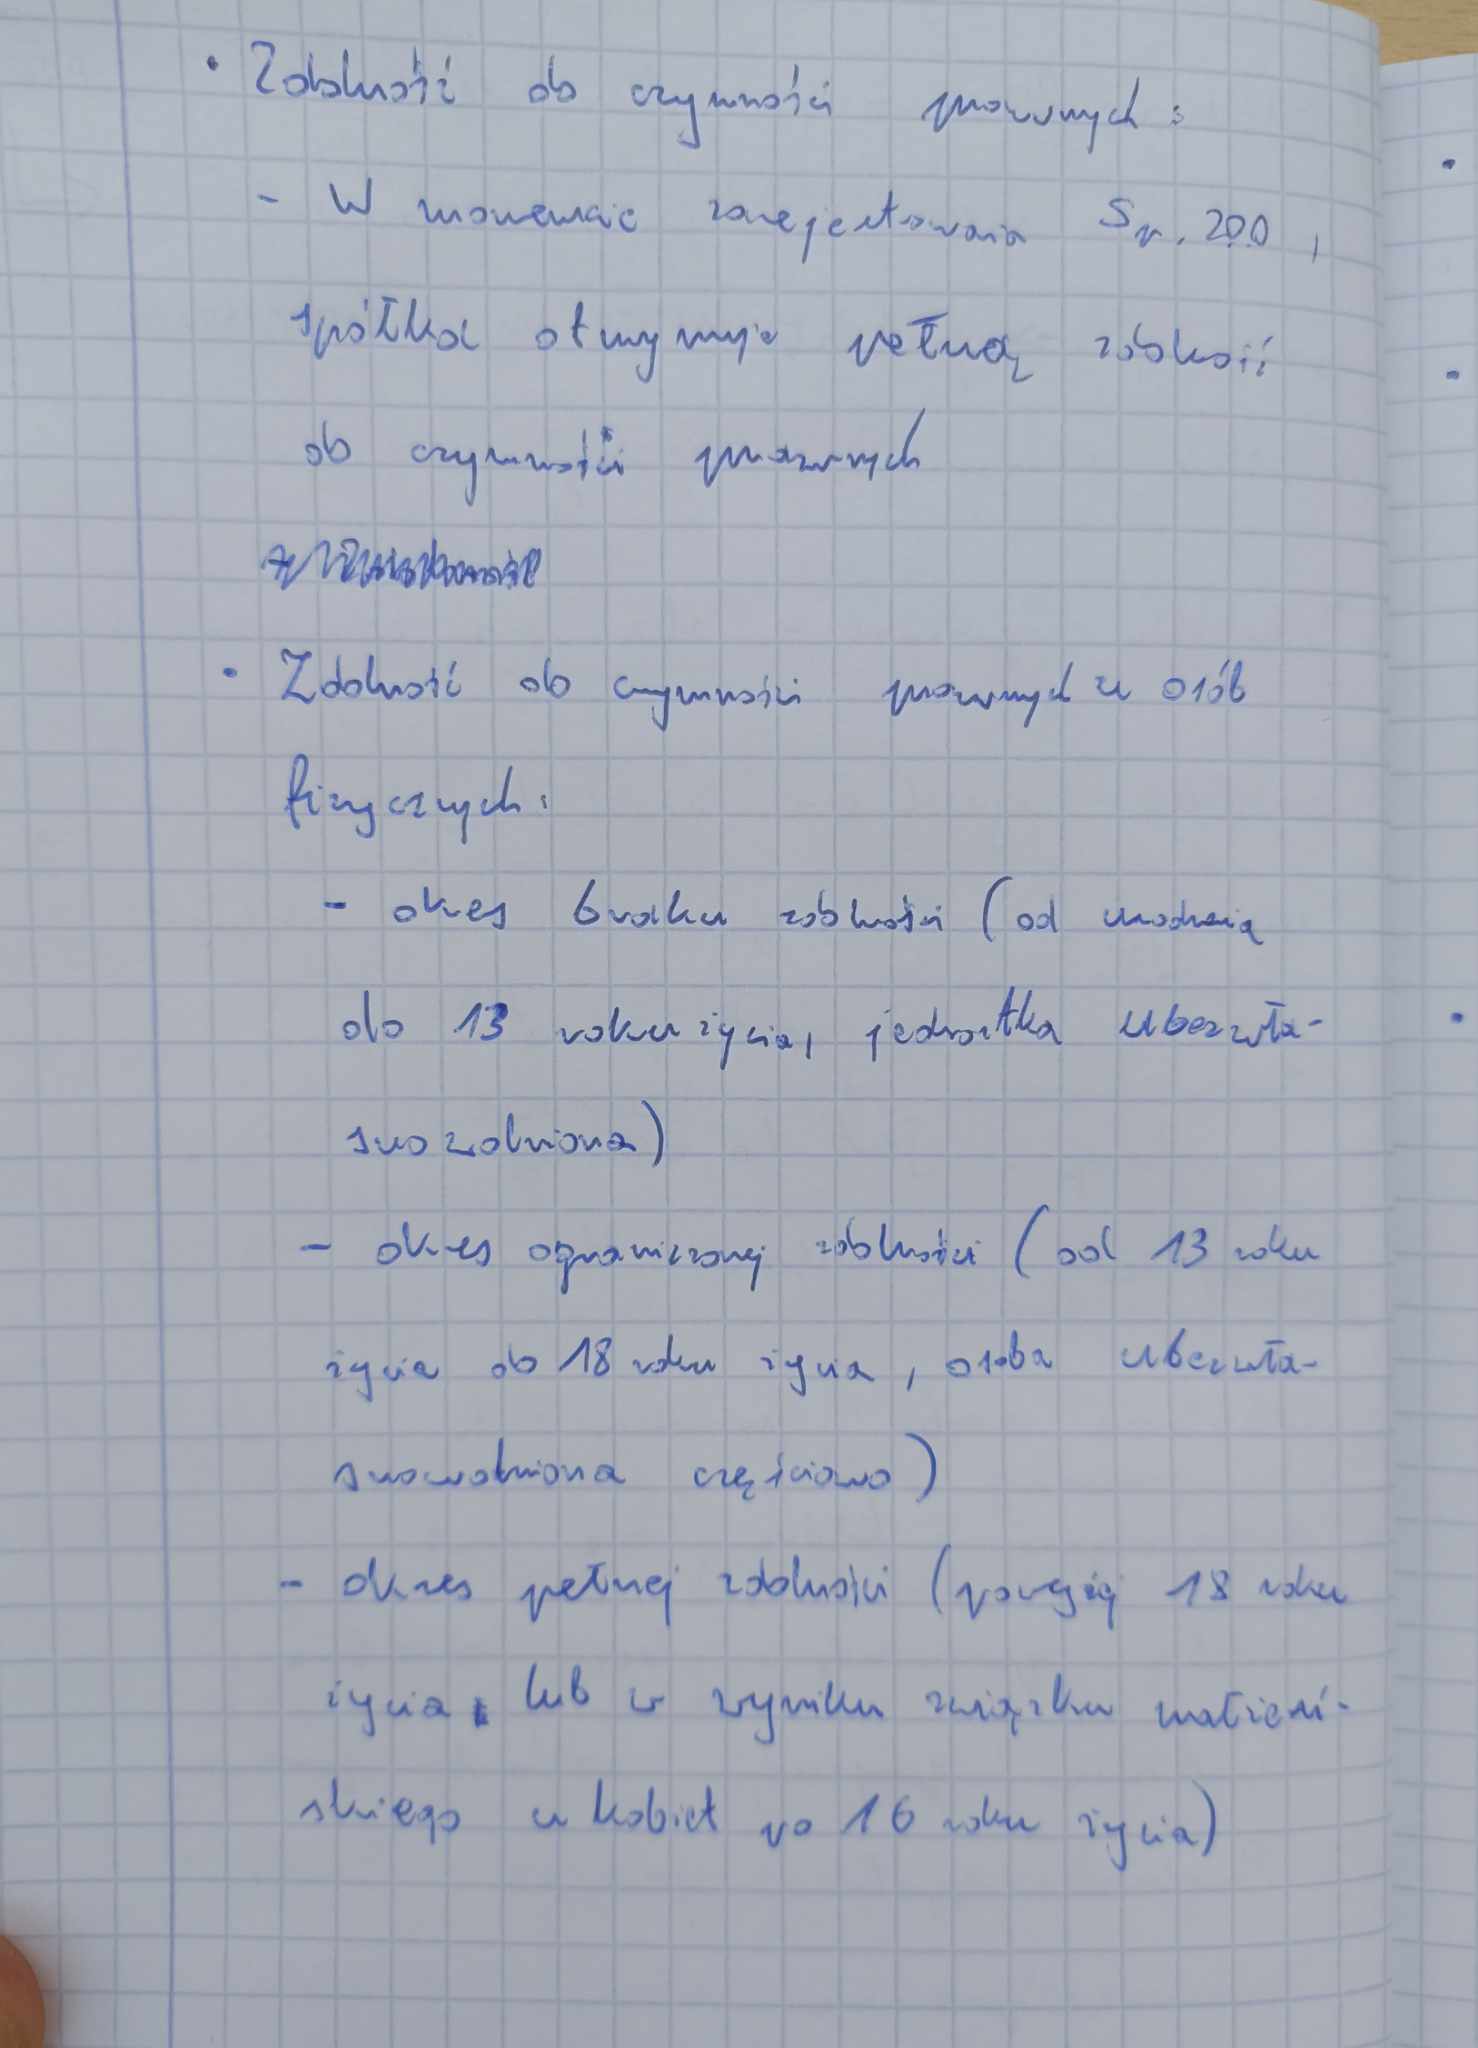 • Zdolność do czynności prawnych:
- W momencie zarejestrowania Sp. z o.o,
spółka otrzymuje pełną zdolność
do czynności prawnych
• Zdolność do czynności prawnych u osób
fizycznych:
- okres braku zdolności (od urodzenia
do 13 roku życia, jednostka ubezwła-
snowolniona)
- okres ograniczonej zdolności (od 13 roku
życia do 18 roku życia, osoba ubezwła-
snowolniona częściowo)
- okres pełnej zdolności (powyżej 18 roku
życia, lub w wyniku związku małżeń-
skiego u kobiet po 16 roku życia)